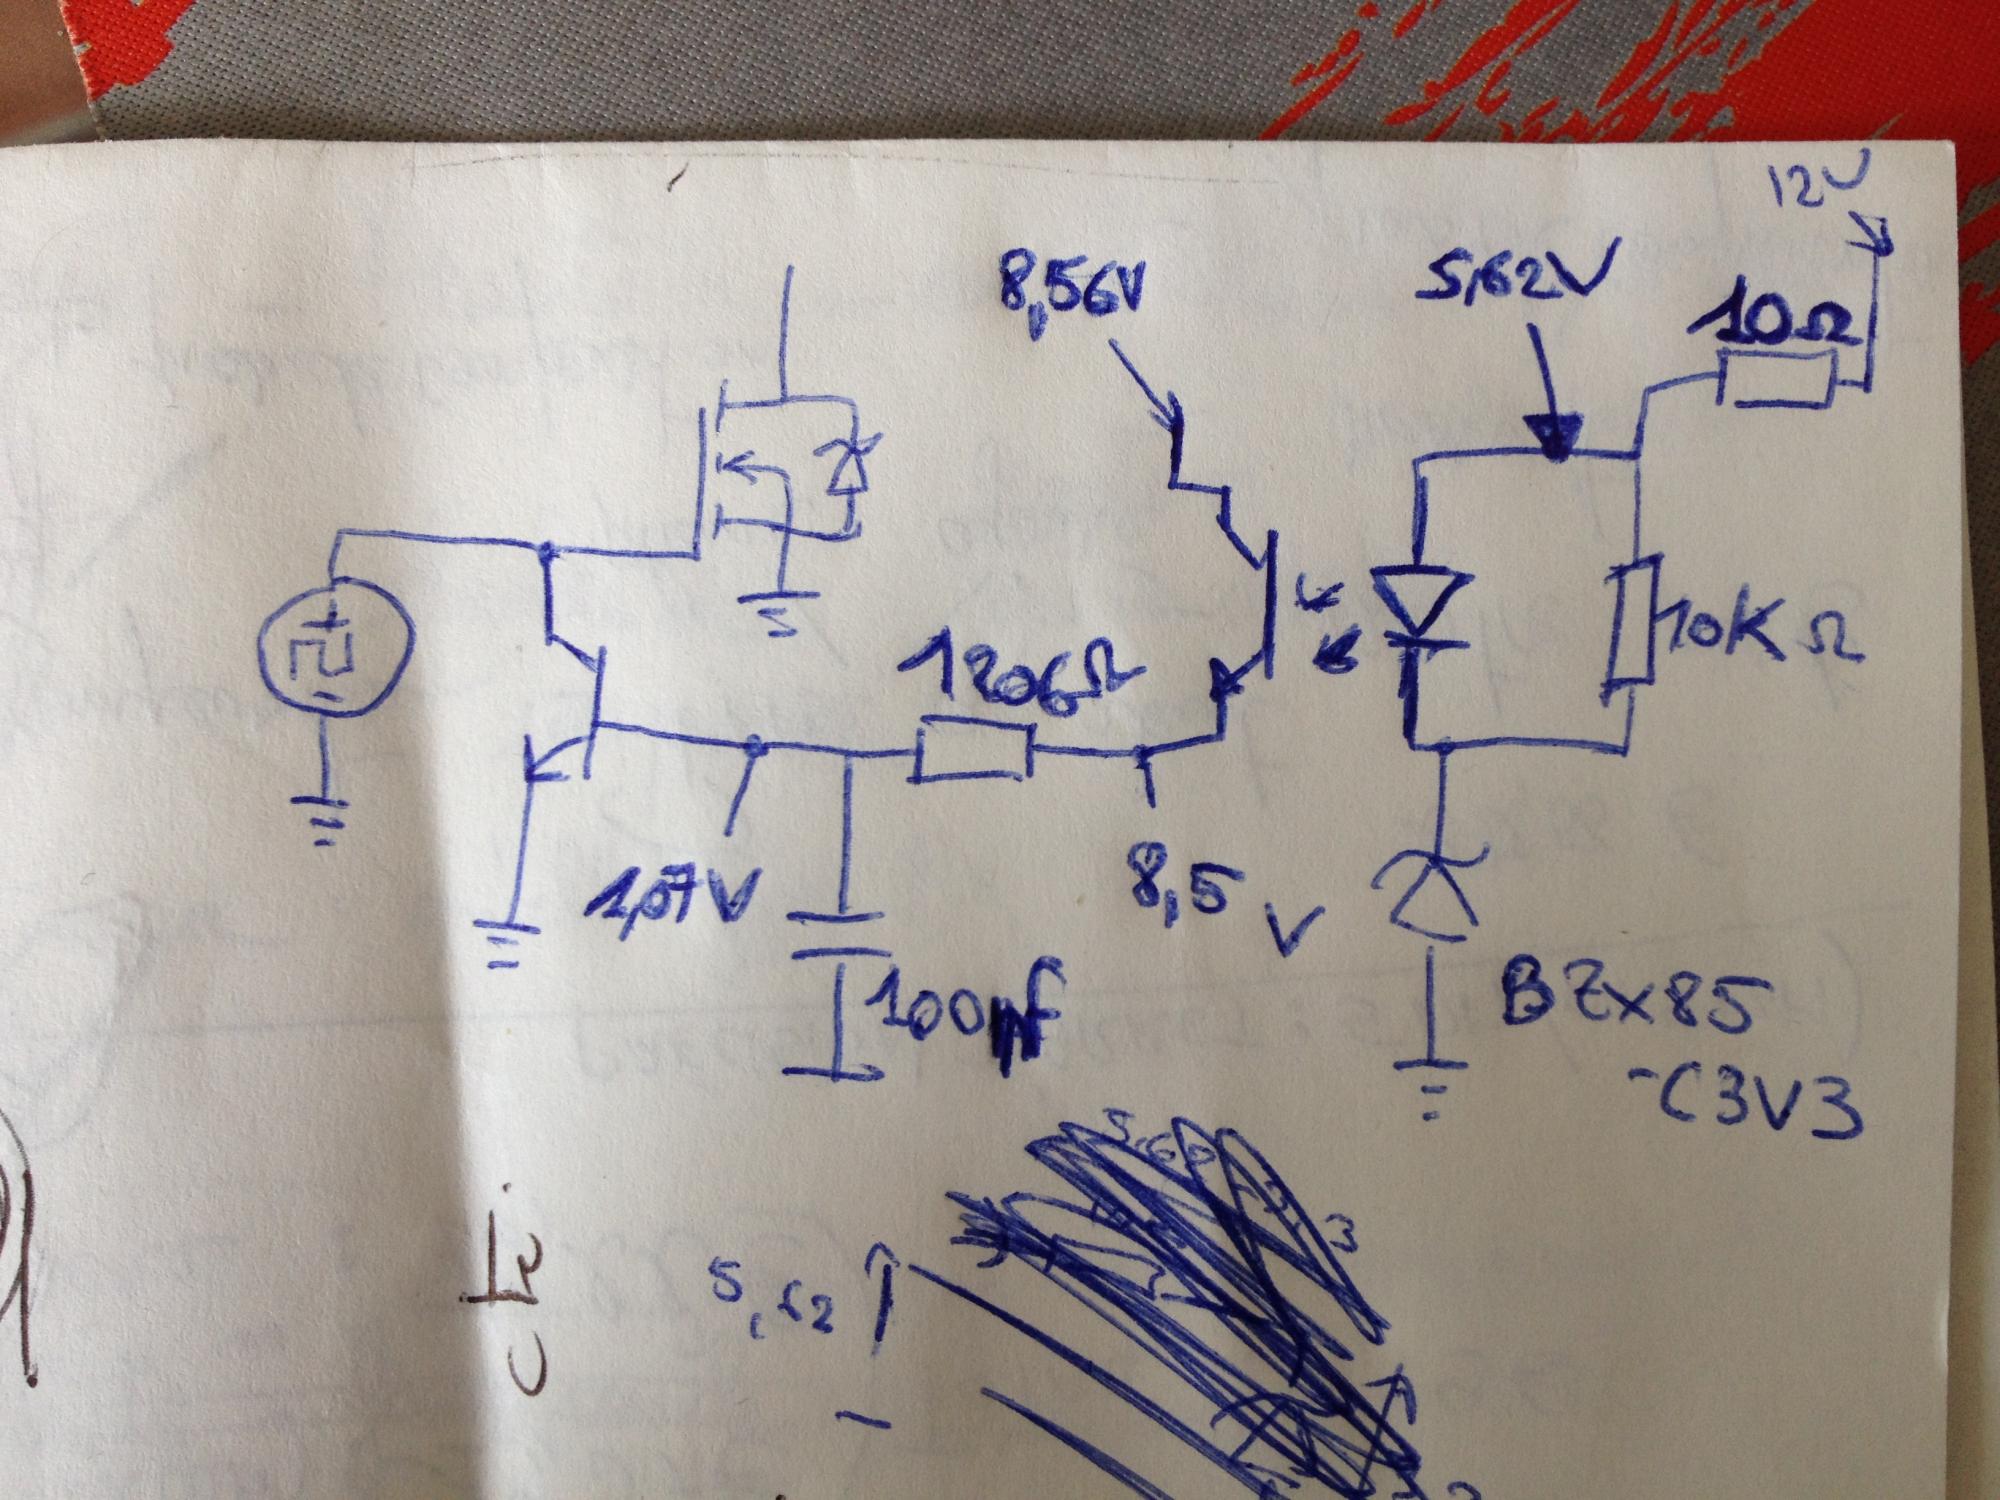 12V
8,56V
5,62V
10Ω
1206Ω
10KΩ
1,07V
8,5V
100nf
BZX85
-C3V3
5,62